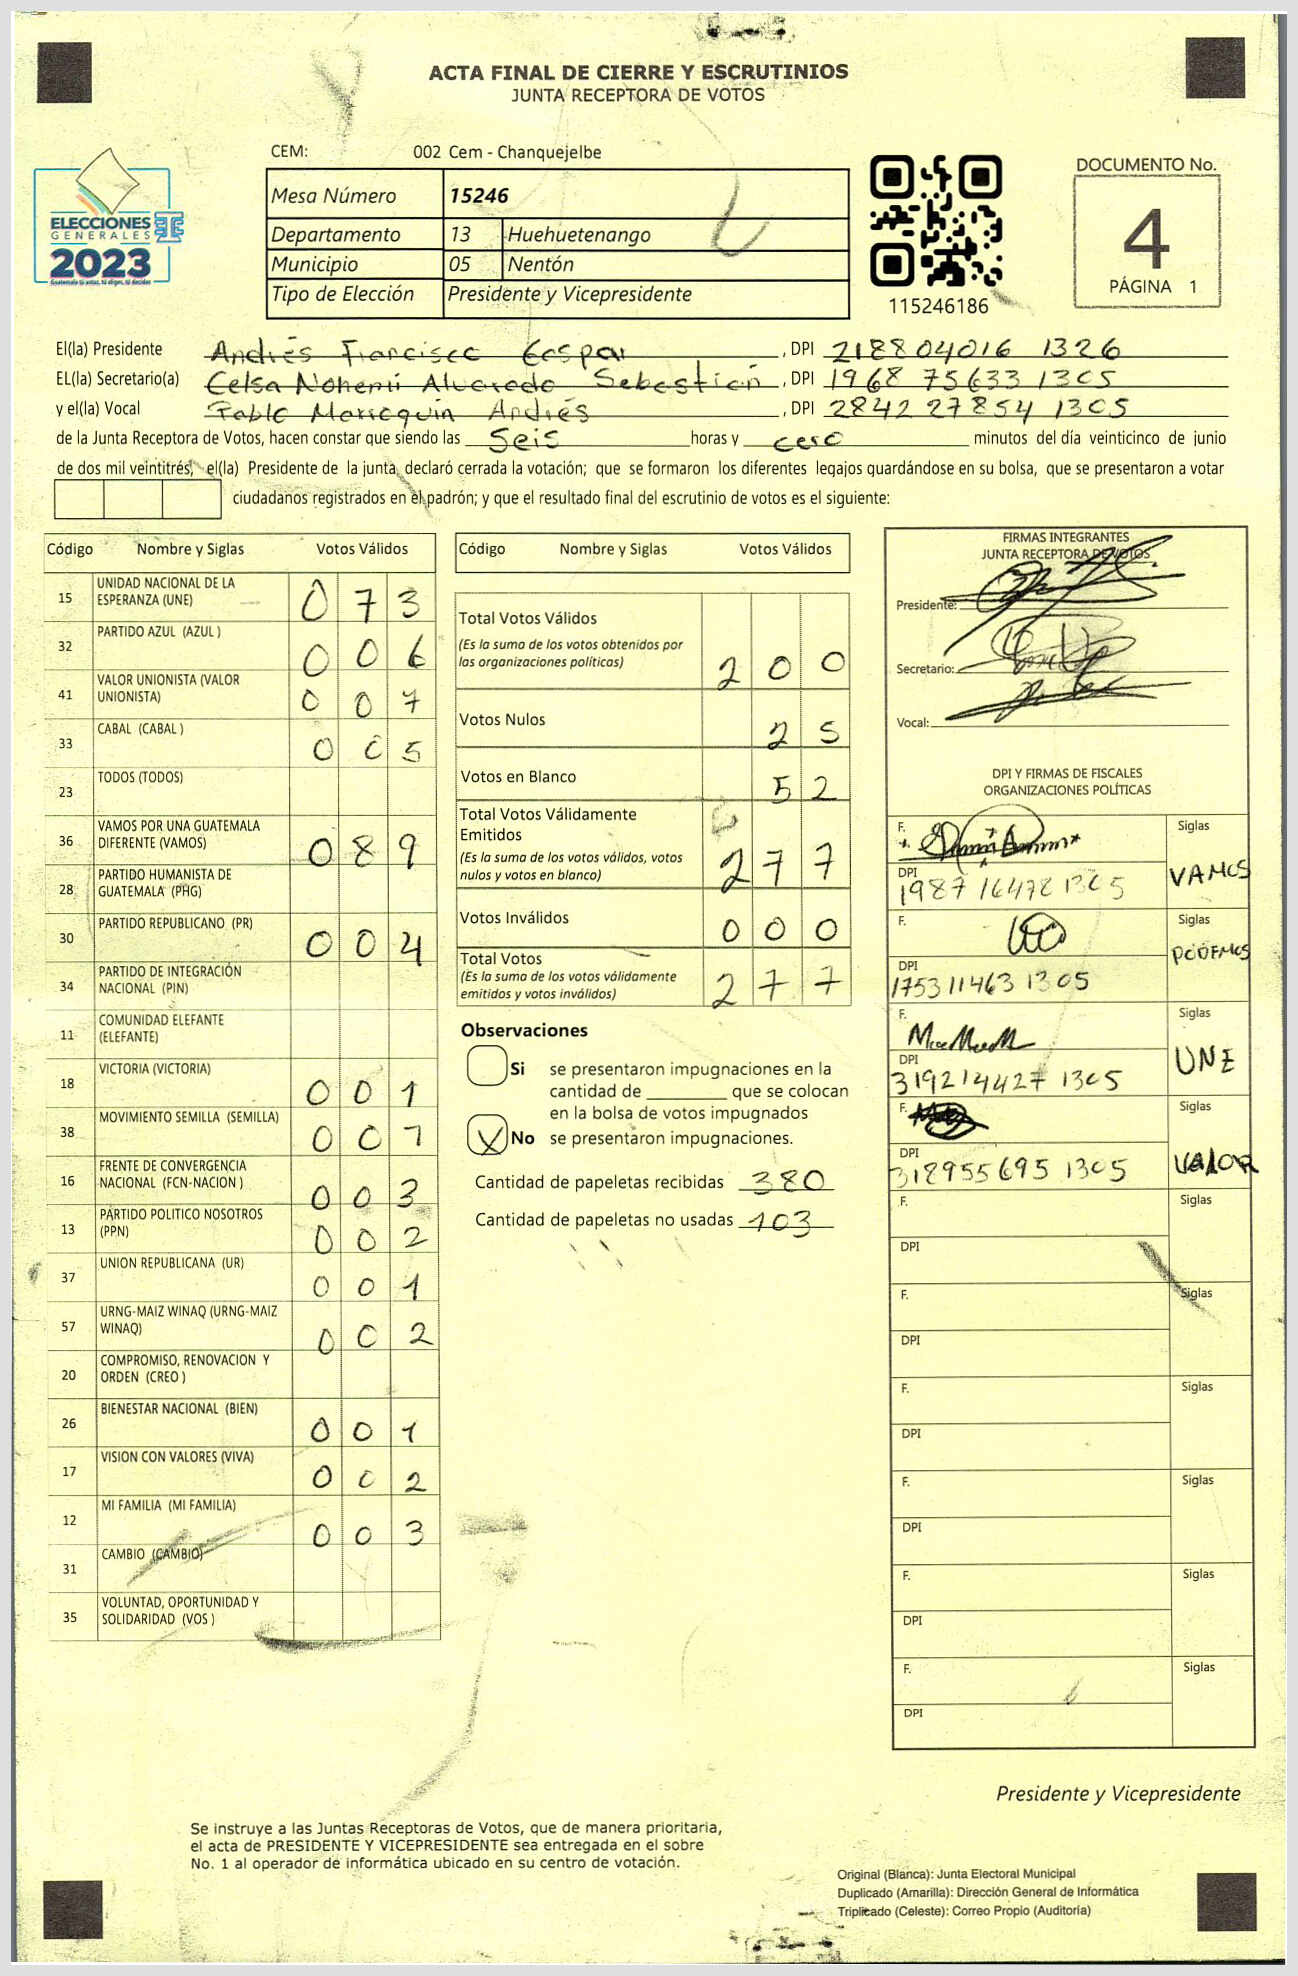 ACTA FINAL DE CIERRE Y ESCRUTINIOS
JUNTA RECEPTORA DE VOTOS
CEM: 002 Cem - Chanquejelbe
DOCUMENTO No.
4
PÁGINA 1
ELECCIONES
GENERALES
2023
Mesa Número 15246
Departamento 13 Huehuetenango
Municipio 05 Nentón
Tipo de Elección Presidente y Vicepresidente
115246186
El(la) Presidente Andrés Francisco Gaspar, DPI 218804016 1326
EL(la) Secretario(a) Celsa Nohemí Alvarado Sebastian, DPI 1968 75633 1305
y el(la) Vocal Pablo Marroquin Andrés, DPI 2842 27854 1305
de la Junta Receptora de Votos, hacen constar que siendo las Seis horas y cero minutos del día veinticinco de junio
de dos mil veintitrés, el(la) Presidente de la junta, declaró cerrada la votación; que se formaron los diferentes legajos guardándose en su bolsa, que se presentaron a votar
ciudadanos registrados en el padrón; y que el resultado final del escrutinio de votos es el siguiente:
Código Nombre y Siglas Votos Válidos
15 UNIDAD NACIONAL DE LA ESPERANZA (UNE) 073
32 PARTIDO AZUL (AZUL ) 006
41 VALOR UNIONISTA (VALOR UNIONISTA) 007
33 CABAL (CABAL ) 005
23 TODOS (TODOS)
36 VAMOS POR UNA GUATEMALA DIFERENTE (VAMOS) 089
28 PARTIDO HUMANISTA DE GUATEMALA (PHG)
30 PARTIDO REPUBLICANO (PR) 004
34 PARTIDO DE INTEGRACIÓN NACIONAL (PIN)
11 COMUNIDAD ELEFANTE (ELEFANTE)
18 VICTORIA (VICTORIA) 001
38 MOVIMIENTO SEMILLA (SEMILLA) 001
16 FRENTE DE CONVERGENCIA NACIONAL (FCN-NACION ) 003
13 PARTIDO POLITICO NOSOTROS (PPN) 002
37 UNION REPUBLICANA (UR) 001
57 URNG-MAIZ WINAQ (URNG-MAIZ WINAQ) 002
20 COMPROMISO, RENOVACION Y ORDEN (CREO )
26 BIENESTAR NACIONAL (BIEN) 001
17 VISION CON VALORES (VIVA) 002
12 MI FAMILIA (MI FAMILIA) 003
31 CAMBIO (CAMBIO)
35 VOLUNTAD, OPORTUNIDAD Y SOLIDARIDAD (VOS )
Código Nombre y Siglas Votos Válidos
Total Votos Válidos 200
(Es la suma de los votos obtenidos por
las organizaciones políticas)
Votos Nulos 25
Votos en Blanco 52
Total Votos Válidamente
Emitidos 277
(Es la suma de los votos válidos, votos
nulos y votos en blanco)
Votos Inválidos 000
Total Votos 277
(Es la suma de los votos válidamente
emitidos y votos inválidos)
Observaciones
Si se presentaron impugnaciones en la
cantidad de ________ que se colocan
en la bolsa de votos impugnados
X No se presentaron impugnaciones.
Cantidad de papeletas recibidas 380
Cantidad de papeletas no usadas 103
FIRMAS INTEGRANTES
JUNTA RECEPTORA DE VOTOS
Presidente:
Secretario:
Vocal:
DPI Y FIRMAS DE FISCALES
ORGANIZACIONES POLÍTICAS
F. Siglas
DPI VAMOS
1987 16472 1305
F. Siglas
PODEMOS
DPI
1753 11463 1305
F. Siglas
DPI UNE
319214427 1305
F. Siglas
DPI VALOR
318955695 1305
F. Siglas
DPI
F. Siglas
DPI
F. Siglas
DPI
F. Siglas
DPI
F. Siglas
DPI
F. Siglas
DPI
Presidente y Vicepresidente
Se instruye a las Juntas Receptoras de Votos, que de manera prioritaria,
el acta de PRESIDENTE Y VICEPRESIDENTE sea entregada en el sobre
No. 1 al operador de informática ubicado en su centro de votación.
Original (Blanca): Junta Electoral Municipal
Duplicado (Amarilla): Dirección General de Informática
Triplicado (Celeste): Correo Propio (Auditoría)